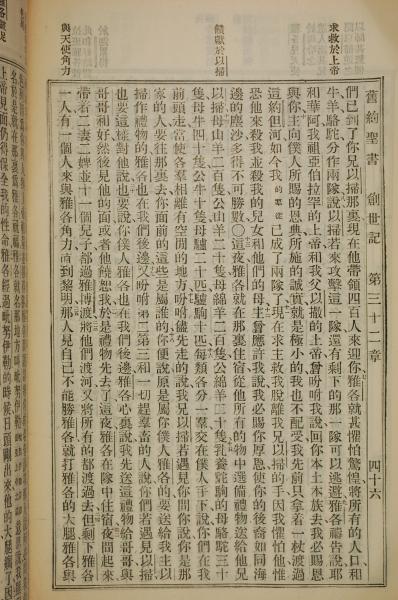 舊約聖書 創世記 第三十二章 四十六
求救於上帝
們已到了你兄以掃那裏現在他帶領四百人來迎你雅各就甚懼怕驚惶將所有的人口和
牛羊駱駝分作兩隊說以掃若來攻擊這一隊還有剩下的那一隊可以逃避雅各禱告說耶
和華我祖亞伯拉罕的上帝和我父以撒的上帝曾吩咐我說回你本土本族去我必賜恩
與你主向僕人所賜的恩典所施的誠實就是極小的我也不配受我先前只拿着一杖過
這約但河如今我的已成了兩隊了現在求主救我脫離我兄以掃的手因我懼怕他惟
恐他來殺我並殺我的兒女和他們的母主曾應許我說我必賜厚恩使你的後裔如同海
饋獻於以掃
邊的塵沙多得不可勝數○這夜雅各就在那裏住宿從他所有的物中選備禮物送給他兄
以掃母山羊二百隻公山羊二十隻母綿羊二百隻公綿羊二十隻乳養駝駒的母駱駝三十
隻母牛四十隻公牛十隻母驢二十匹驢駒十匹每類各分一羣交在僕人手下說你們在我
前頭走當使各羣相離有空閒的地方吩咐儘先走的說我兄以掃若遇見你問你說你是那
家的人要往那裏去你面前的這些是屬誰的你便說原是屬你僕人雅各的要送給我主以
掃作禮物的雅各也在我們後邊又吩咐第二第三和一切趕羣畜的人說你們若遇見以掃
也要這樣對他說也要說你僕人雅各在我們後邊雅各心裏說我先送這禮物給哥哥與
哥哥和好然後見他的面或者他饒恕我於是禮物先去了這夜雅各在隊中住宿夜間起來
帶着二妻二婢並十一個兒子都過雅博渡將他們渡河又將所有的都渡過去但剩下雅各
與天使角力
一人有一個人來與雅各角力直到黎明那人見自己不能勝雅各就打雅各的大腿雅各與
上帝見面仍得保全我的性命雅各經過毗努伊勒的時候日頭剛出來他的大腿瘸了因